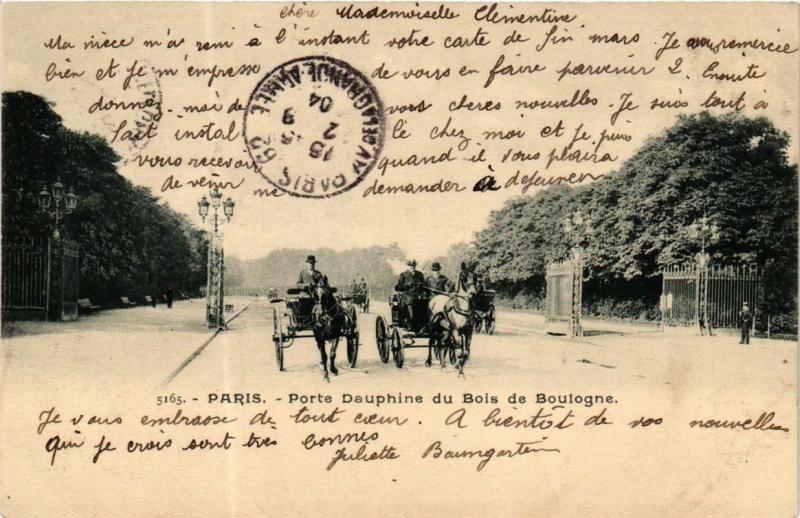 chère Mademoiselle Clémentine
Ma nièce m'a remi à l'instant votre carte de fin mars. Je vous remercie
bien et je m'empresse de vous en faire parvenir 2. Ensuite
donnez-moi de vos cheres nouvelles. Je suis tout à
fait instal lé chez moi et je puis
vous recevoir quand il vous plaira
de venir me demander à dejeuner
PARIS 60 R. D'ALLERAY-GRANDE-ARMEE
13
2
04
5165. - PARIS. - Porte Dauphine du Bois de Boulogne.
Je vous embrasse de tout cœur. A bientôt de vos nouvelles
que je crois sont très bonnes
Juliette Baumgarten